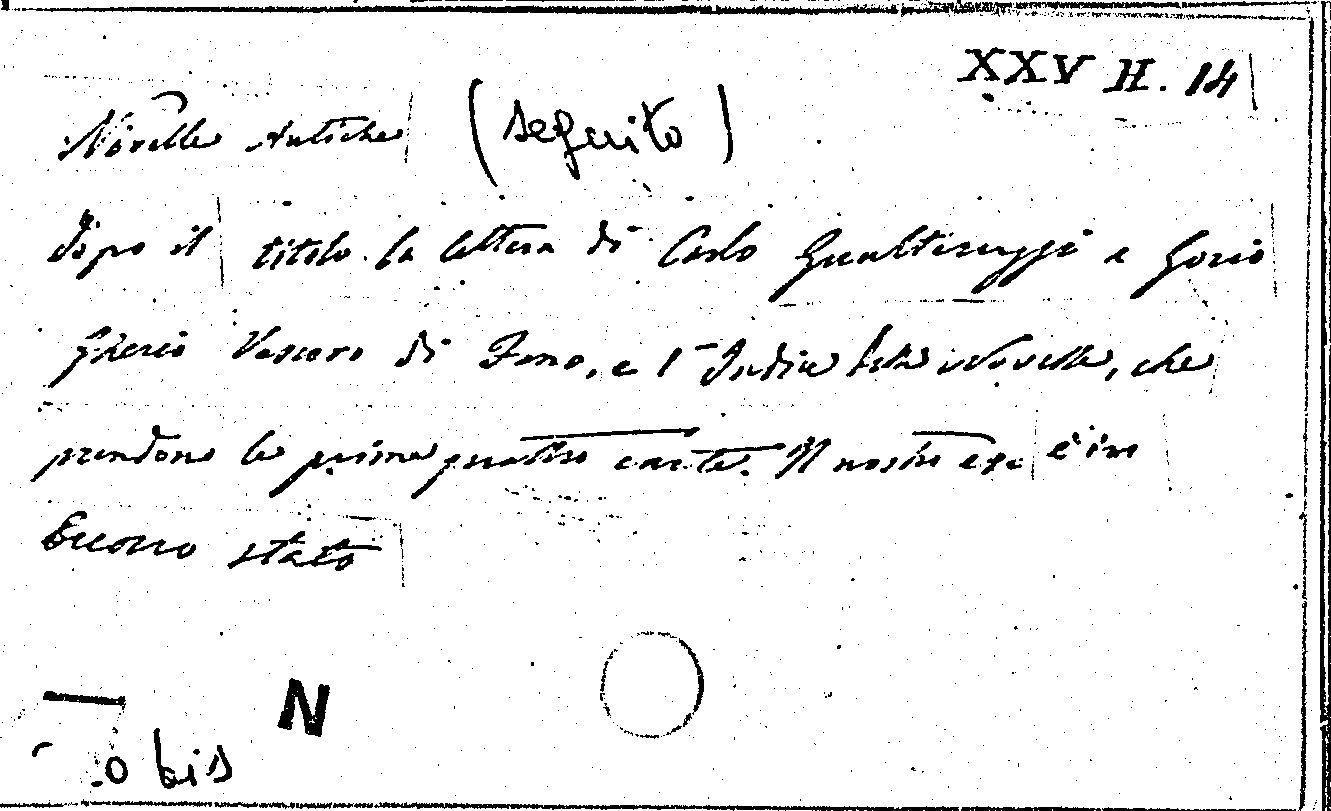 XXV H. 14
Novelle Antiche (seguito)
dopo il titolo la lettera di Carlo Gualteruzzi a Goro
Gherio Vescovo di Fano, e l'Indice delle Novelle, che
prendono le prime quattro carte. Il nostro es. è in
buono stato
N
o bis